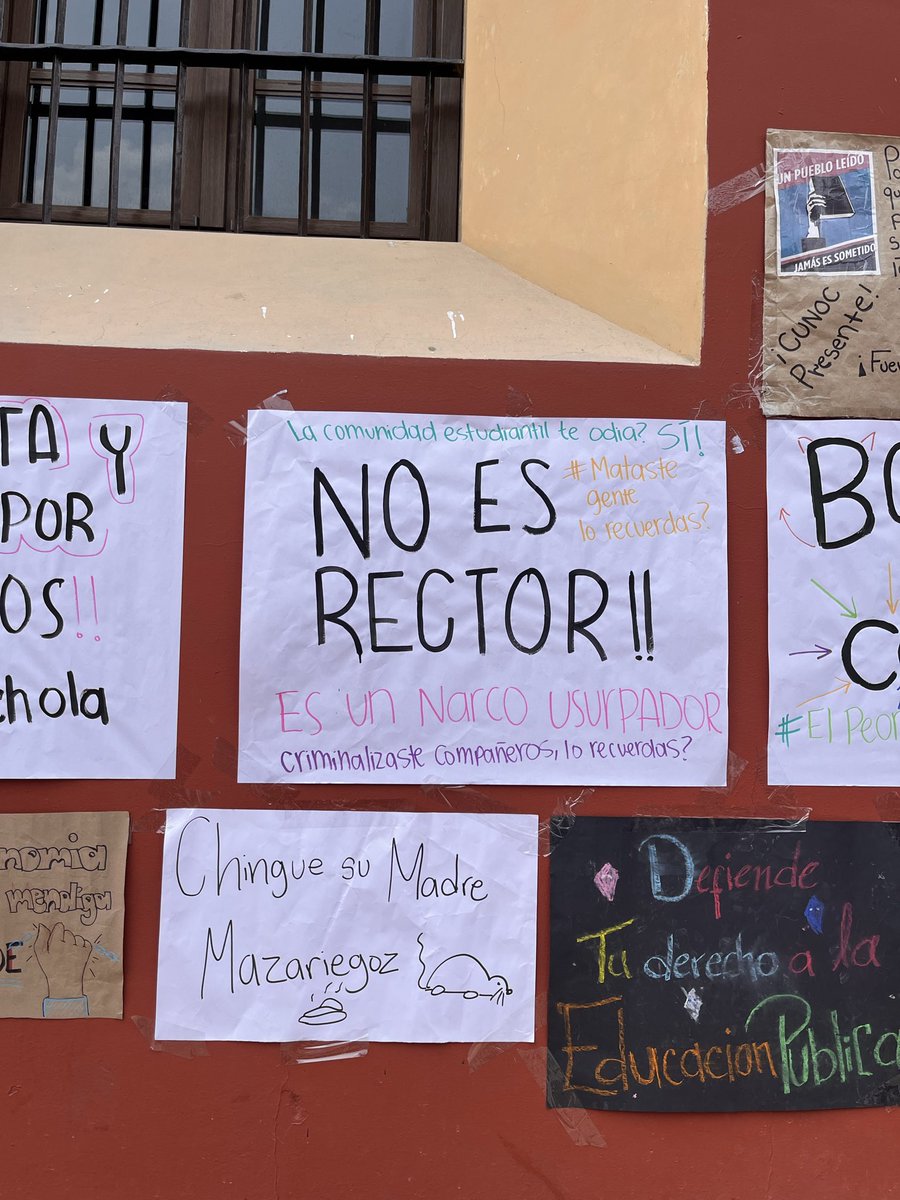 UN PUEBLO LEÍDO
JAMÁS ES SOMETIDO
¡CUNOC
Presente!
¡Fuer
TA Y
POR
OS!!
chola
La comunidad estudiantil te odia? SÍ!
NO ES
#Mataste
gente
lo recuerdas?
RECTOR!!
ES UN NARCO USURPADOR
criminalizaste compañeros, lo recuerdas?
BO
#El Peor
nomia
mendiga
DE
Chingue su Madre
Mazariegoz
Defiende
Tu derecho a la
Educacion Publica